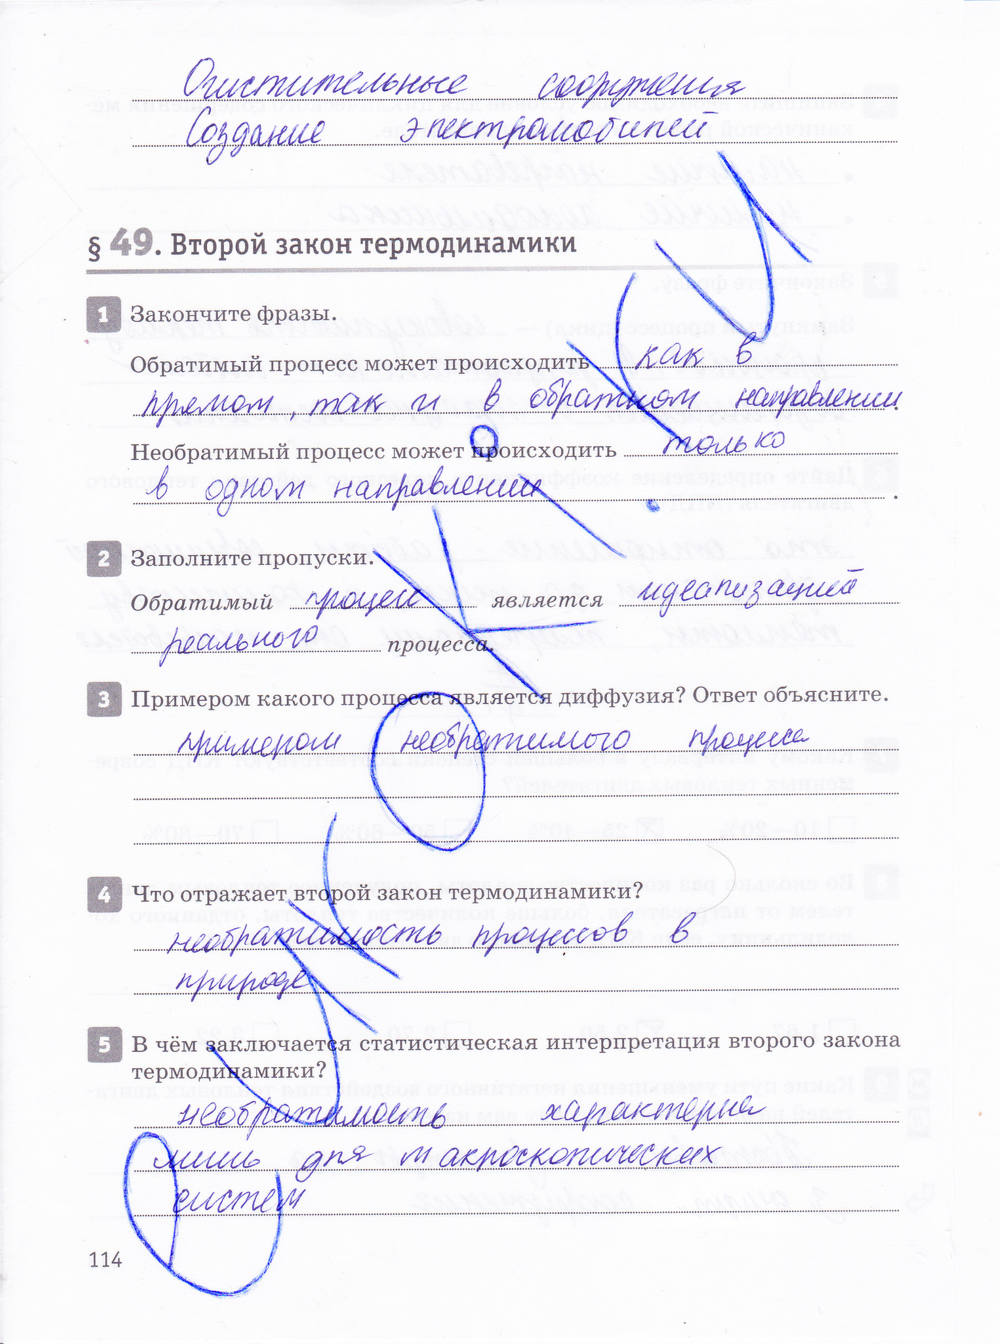 Очистительные сооружения
Создание электромобилей
§ 49. Второй закон термодинамики
1 Закончите фразы.
Обратимый процесс может происходить как в
прямом, так и в обратном направлении.
Необратимый процесс может происходить только
в одном направлении.
2 Заполните пропуски.
Обратимый процесс является идеализацией
реального процесса.
3 Примером какого процесса является диффузия? Ответ объясните.
примером необратимого процесса
4 Что отражает второй закон термодинамики?
необратимость процессов в
природе
5 В чём заключается статистическая интерпретация второго закона
термодинамики?
необратимость характерна
лишь для макроскопических
систем
114